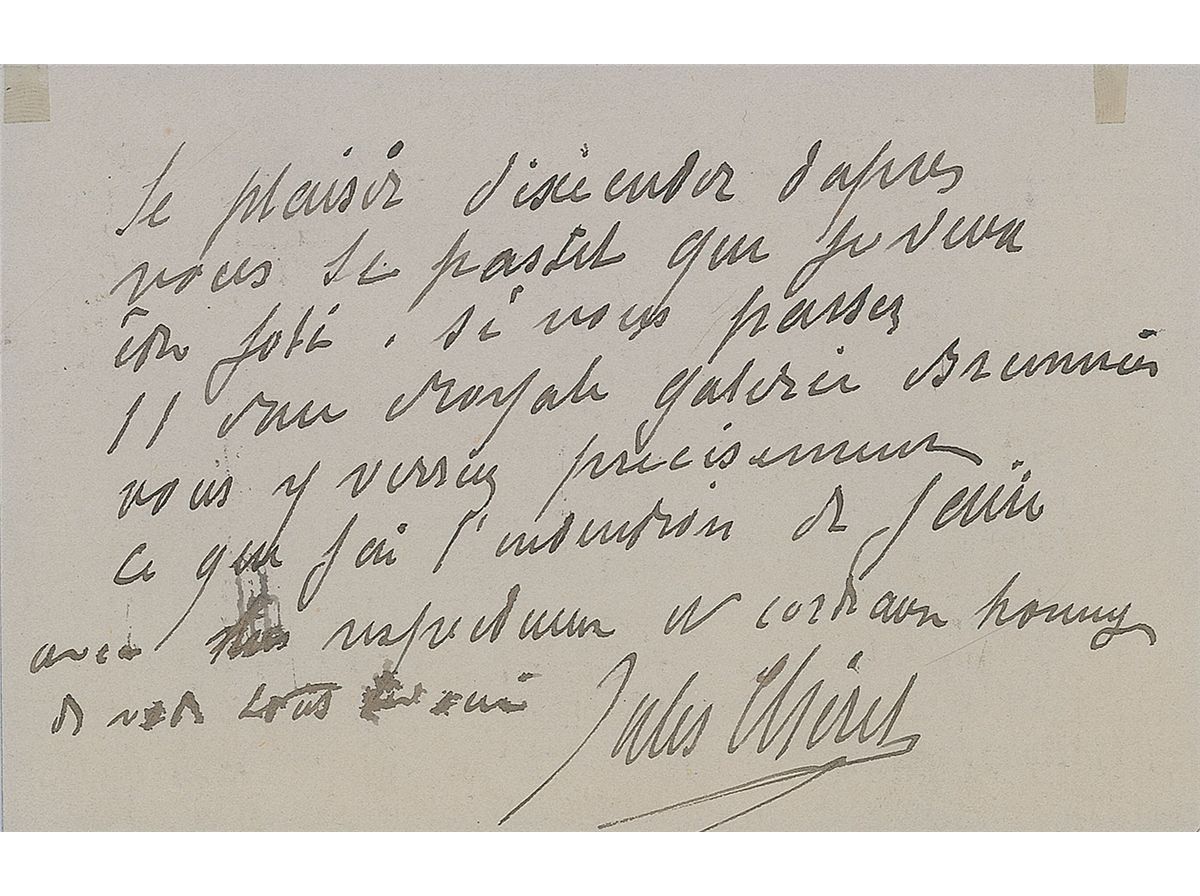 le plaisir d'exécuter d'apres
vous le pastel que je veux
être joli. si vous passez
11 rue royale galerie
vous y verrez précisement
ce que j'ai l'intention de faire
avec respectueux et cordiaux hommages
de votre tout
Jules Chéret